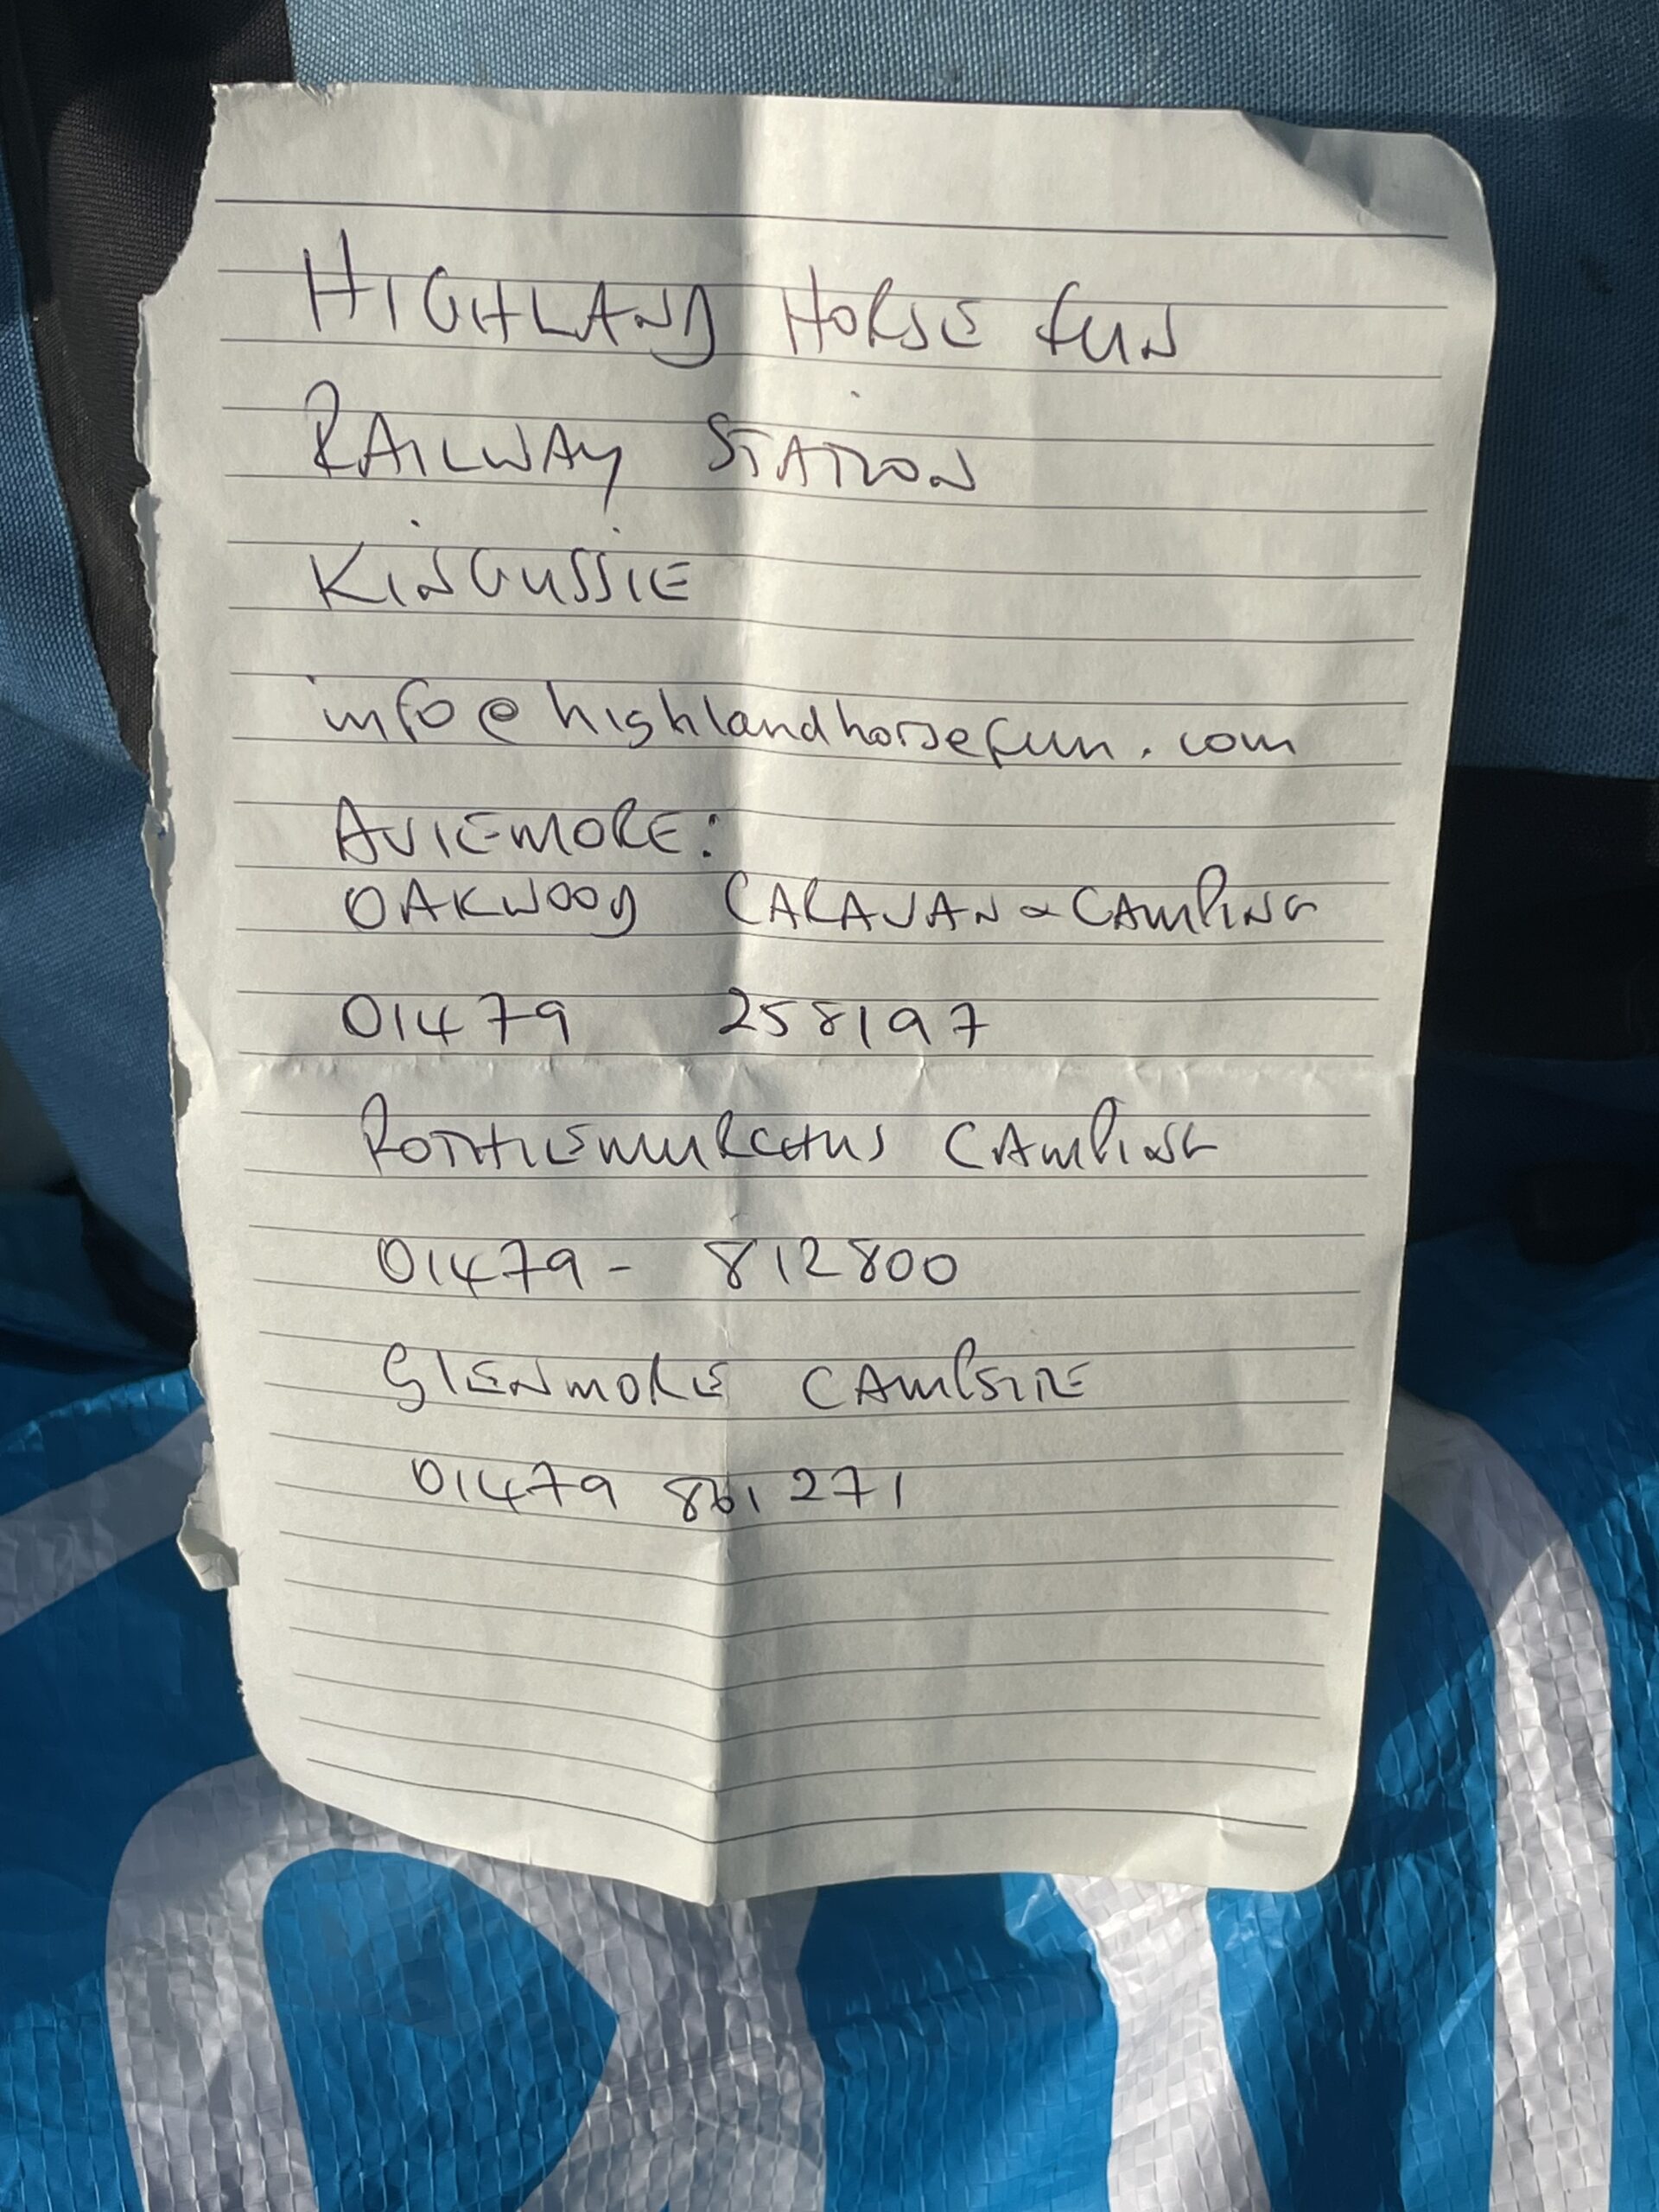 HIGHLAND HORSE FUN
RAILWAY STATION
KINGUSSIE
info@highlandhorsefun.com
AVIEMORE:
OAKWOOD CARAVAN & CAMPING
01479 258197
ROTHIEMURCHUS CAMPING
01479 - 812800
GLENMORE CAMPSITE
01479 861 271